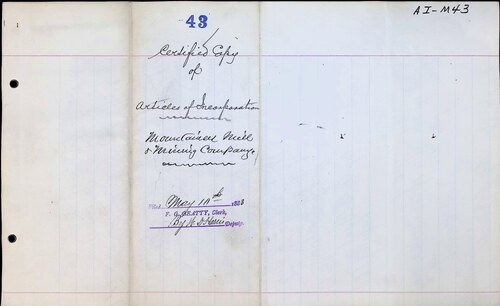 43
AI-M43
Certified Copy
of
Articles of Incorporation
Mountaineer Mill
& Mining Company.
Filed May 10th 188
F. G. BEATTY, Clerk,
By Deputy.